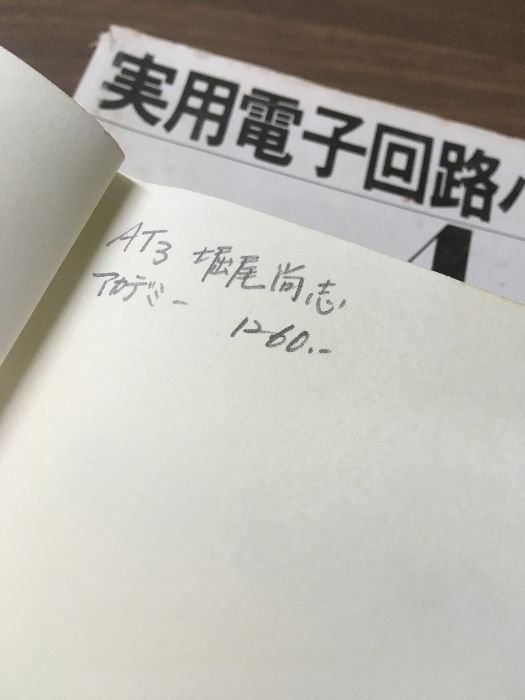 実用電子回路ハ
AT3 堀尾尚志
アカデミー 1260.-